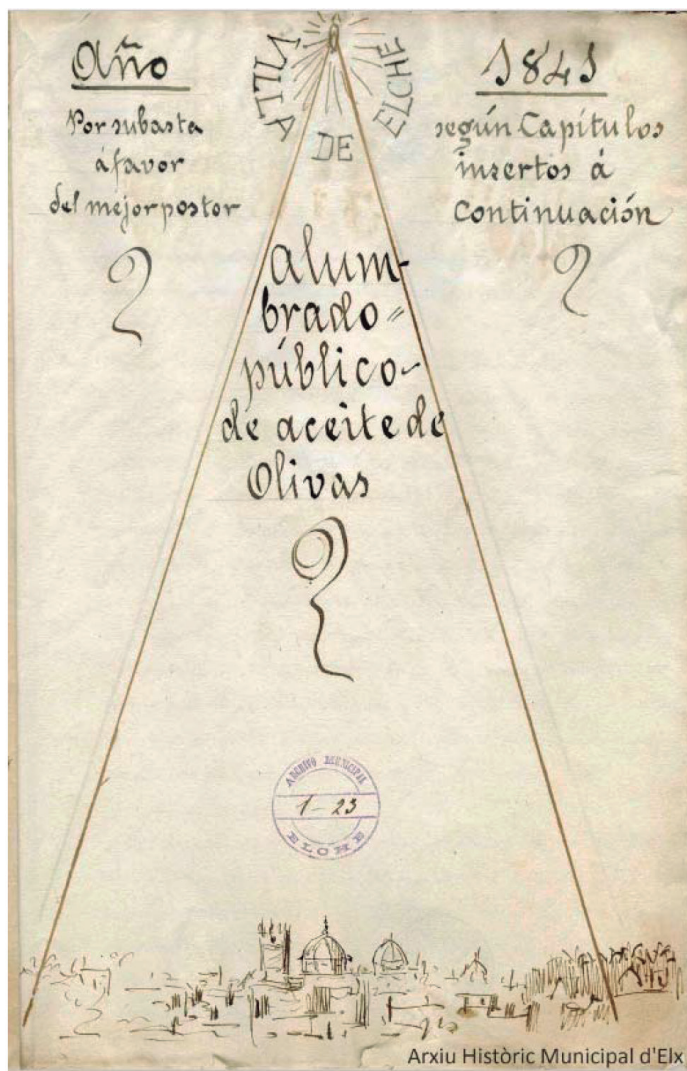 Año
1841
VILLA
DE
ELCHE
Por subasta
á favor
del mejor postor
según Capítulos
insertos á
Continuación
alum-
brado=
público-
de aceite de
Olivas
ARCHIVO MUNICIPAL
1-23
ELCHE
Arxiu Històric Municipal d'Elx